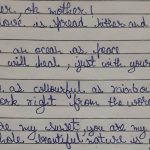 oh mother!
is spread hither and
an ocean as peace
will heal, just with your
as colourful as rainbow
right from the
my sunset, you are my
whole beautiful nature is